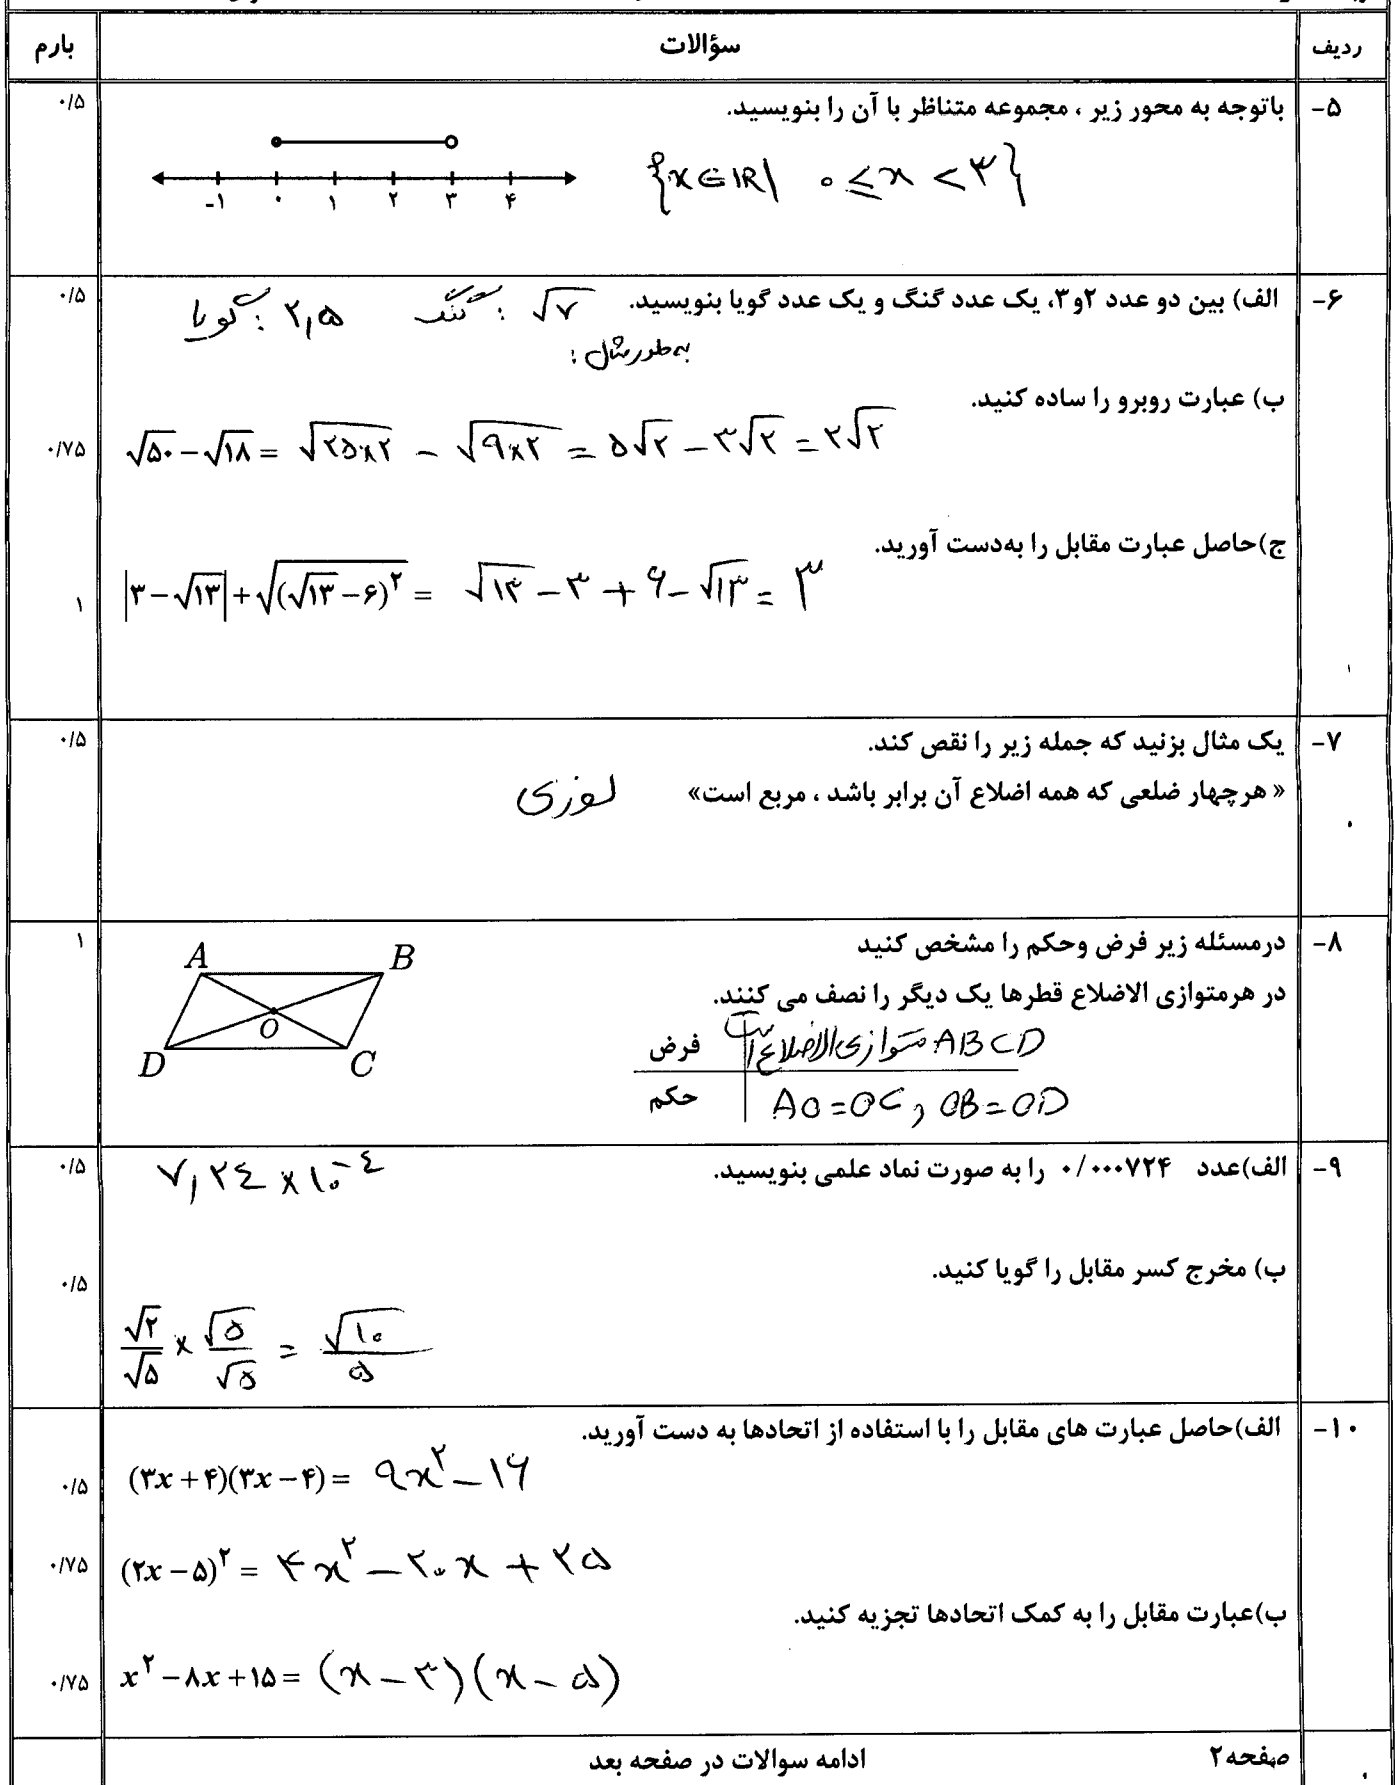 ردیف سؤالات بارم
۵- باتوجه به محور زیر ، مجموعه متناظر با آن را بنویسید. ۰/۵
{x∈IR| ۰ ≤ x < ۳}
-۱ ۰ ۱ ۲ ۳ ۴
۶- الف) بین دو عدد ۲و۳، یک عدد گنگ و یک عدد گویا بنویسید. √۷ : گنگ ۲,۵ : گویا ۰/۵
به طور مثال :
ب) عبارت روبرو را ساده کنید.
√۵۰ − √۱۸ = √۲۵×۲ − √۹×۲ = ۵√۲ − ۳√۲ = ۲√۲ ۰/۷۵
ج)حاصل عبارت مقابل را به‌دست آورید.
|۳ − √۱۳| + √(√۱۳ − ۶)^۲ = √۱۳ − ۳ + ۶ − √۱۳ = ۳ ۱
۷- یک مثال بزنید که جمله زیر را نقض کند. ۰/۵
« هرچهار ضلعی که همه اضلاع آن برابر باشد ، مربع است» لوزی
۸- درمسئله زیر فرض وحکم را مشخص کنید ۱
در هرمتوازی الاضلاع قطرها یک دیگر را نصف می کنند.
A B
O
D C
فرض ABCD متوازی الاضلاع است
حکم AO=OC , OB=OD
۹- الف)عدد ۰/۰۰۰۷۲۴ را به صورت نماد علمی بنویسید. ۷,۲٤ × ۱۰^-٤ ۰/۵
ب) مخرج کسر مقابل را گویا کنید. ۰/۵
√۲/√۵ × √۵/√۵ = √۱۰/۵
۱۰- الف)حاصل عبارت های مقابل را با استفاده از اتحادها به دست آورید.
(۳x + ۴)(۳x − ۴) = ۹x^۲ − ۱۶ ۰/۵
(۲x − ۵)^۲ = ۴x^۲ − ۲۰x + ۲۵ ۰/۷۵
ب)عبارت مقابل را به کمک اتحادها تجزیه کنید.
x^۲ − ۸x + ۱۵ = (x − ۳)(x − ۵) ۰/۷۵
صفحه۲ ادامه سوالات در صفحه بعد